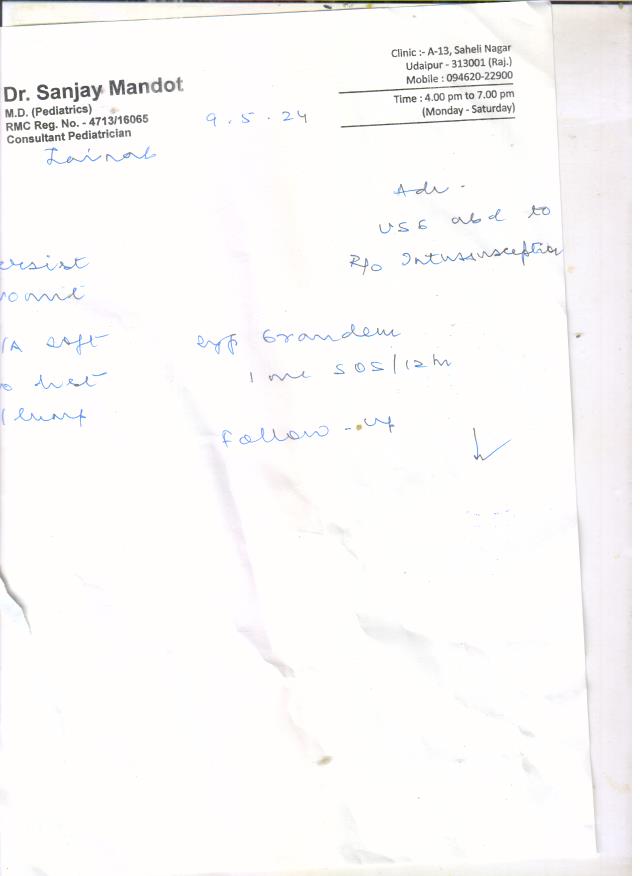 Dr. Sanjay Mandot
M.D. (Pediatrics)
RMC Reg. No. - 4713/16065
Consultant Pediatrician
Clinic :- A-13, Saheli Nagar
Udaipur - 313001 (Raj.)
Mobile : 094620-22900
Time : 4.00 pm to 7.00 pm
(Monday - Saturday)
9.5.24
Zainab
Adv.
USG abd to
R/o Intussusception
ersist
vomit
/A soft
o dist
/lump
syp Grandem
1 ml SOS/12 hr
Follow-up